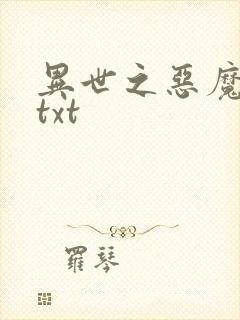 異世之惡魔
txt
羅琴